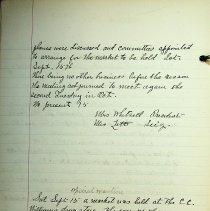 plans were discussed and committees appointed
to arrange for the market to be held Sat.
Sept. 15th
There being no other business before the session
the meeting adjourned to meet again the
second Tuesday in Oct.
No present 15
Mrs Whitsett President
Mrs Secy.
Special meeting
Sat Sept 15 a market was held at the C.C.